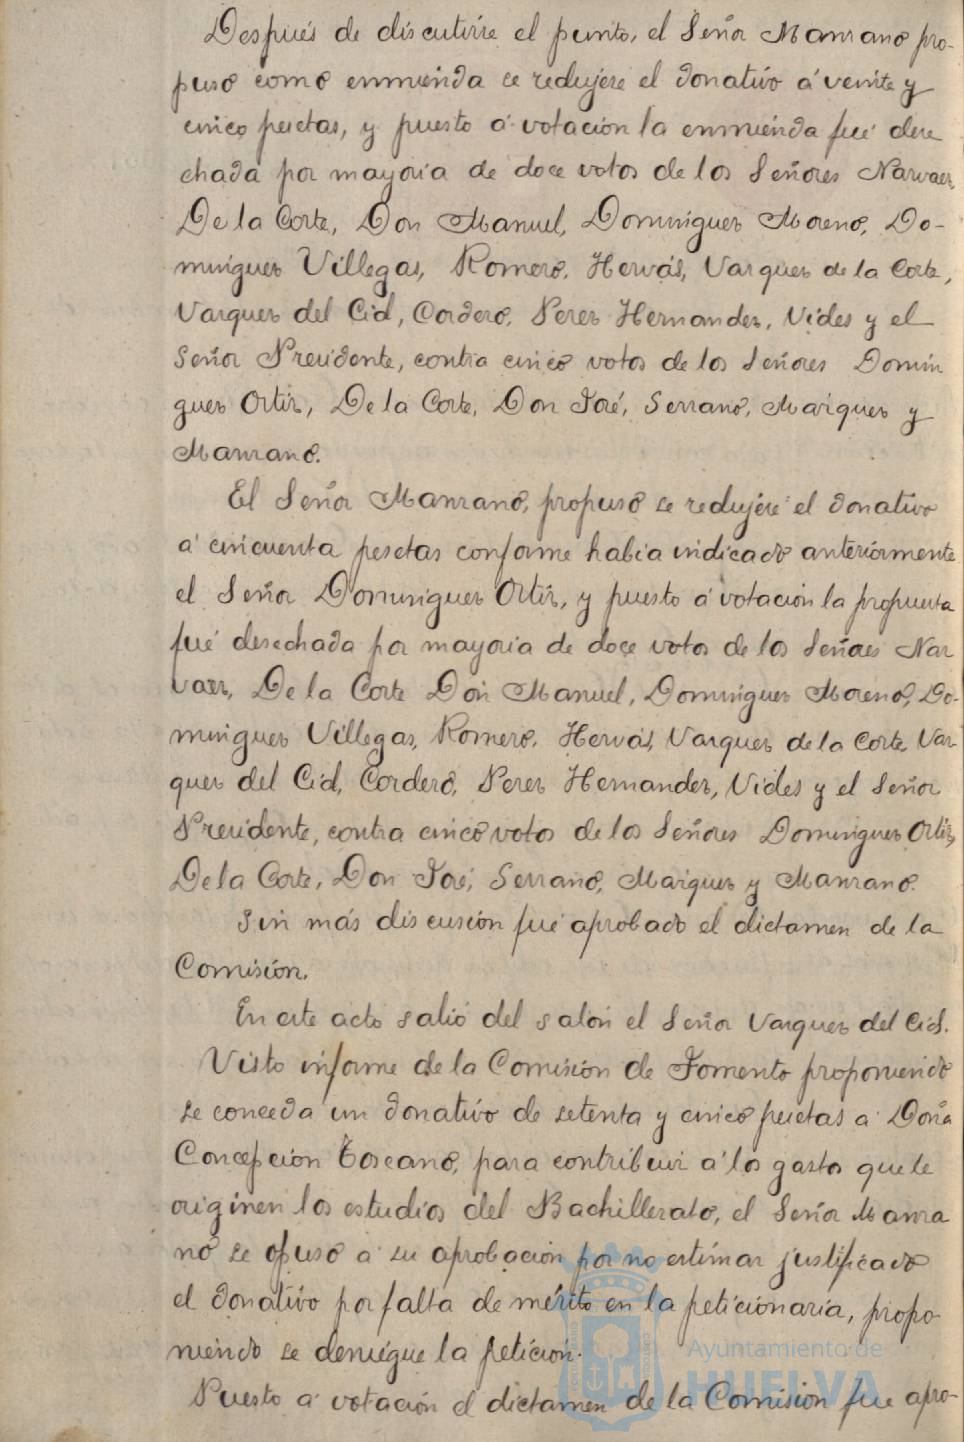 Después de discutirse el punto, el Señor Manzano pro-
puso como enmienda se redujese el donativo á veinte y
cinco pesetas, y puesto á votación la enmienda fué dese
chada por mayoria de doce votos de los Señores Narvaez,
De la Corte, Don Manuel, Dominguez Moreno, Do-
minguez Villegas, Romero, Hervás, Vazquez de la Corte,
Vazquez del Cid, Cordero, Perez Hernandez, Vides y el
Señor Presidente, contra cinco votos de los Señores Domin
guez Ortiz, De la Corte, Don José, Serrano, Marquez y
Manzano.
El Señor Manzano, propuso se redujese el donativo
á cincuenta pesetas conforme habia indicado anteriormente
el Señor Dominguez Ortiz, y puesto á votación la propuesta
fué desechada por mayoria de doce votos de los Señores Nar
vaez, De la Corte Don Manuel, Dominguez Moreno, Do-
minguez Villegas, Romero, Hervás, Vazquez de la Corte Vaz-
quez del Cid, Cordero, Perez Hernandez, Vides y el Señor
Presidente, contra cinco votos de los Señores Dominguez Ortiz,
De la Corte, Don José, Serrano, Marquez y Manzano.
Sin más discusión fué aprobado el dictamen de la
Comisión.
En este acto salió del salón el Señor Vazquez del Cid.
Visto informe de la Comisión de Fomento proponiendo
se conceda un donativo de setenta y cinco pesetas a Doña
Concepción Toscano, para contribuir á los gastos que le
originen los estudios del Bachillerato, el Señor Manza
no se opuso a su aprobación por no estimar justificado
el donativo por falta de mérito en la peticionaria, propo-
niendo se deniegue la petición.
Puesto á votación el dictamen de la Comisión fue apro-
Ayuntamiento de
HUELVA